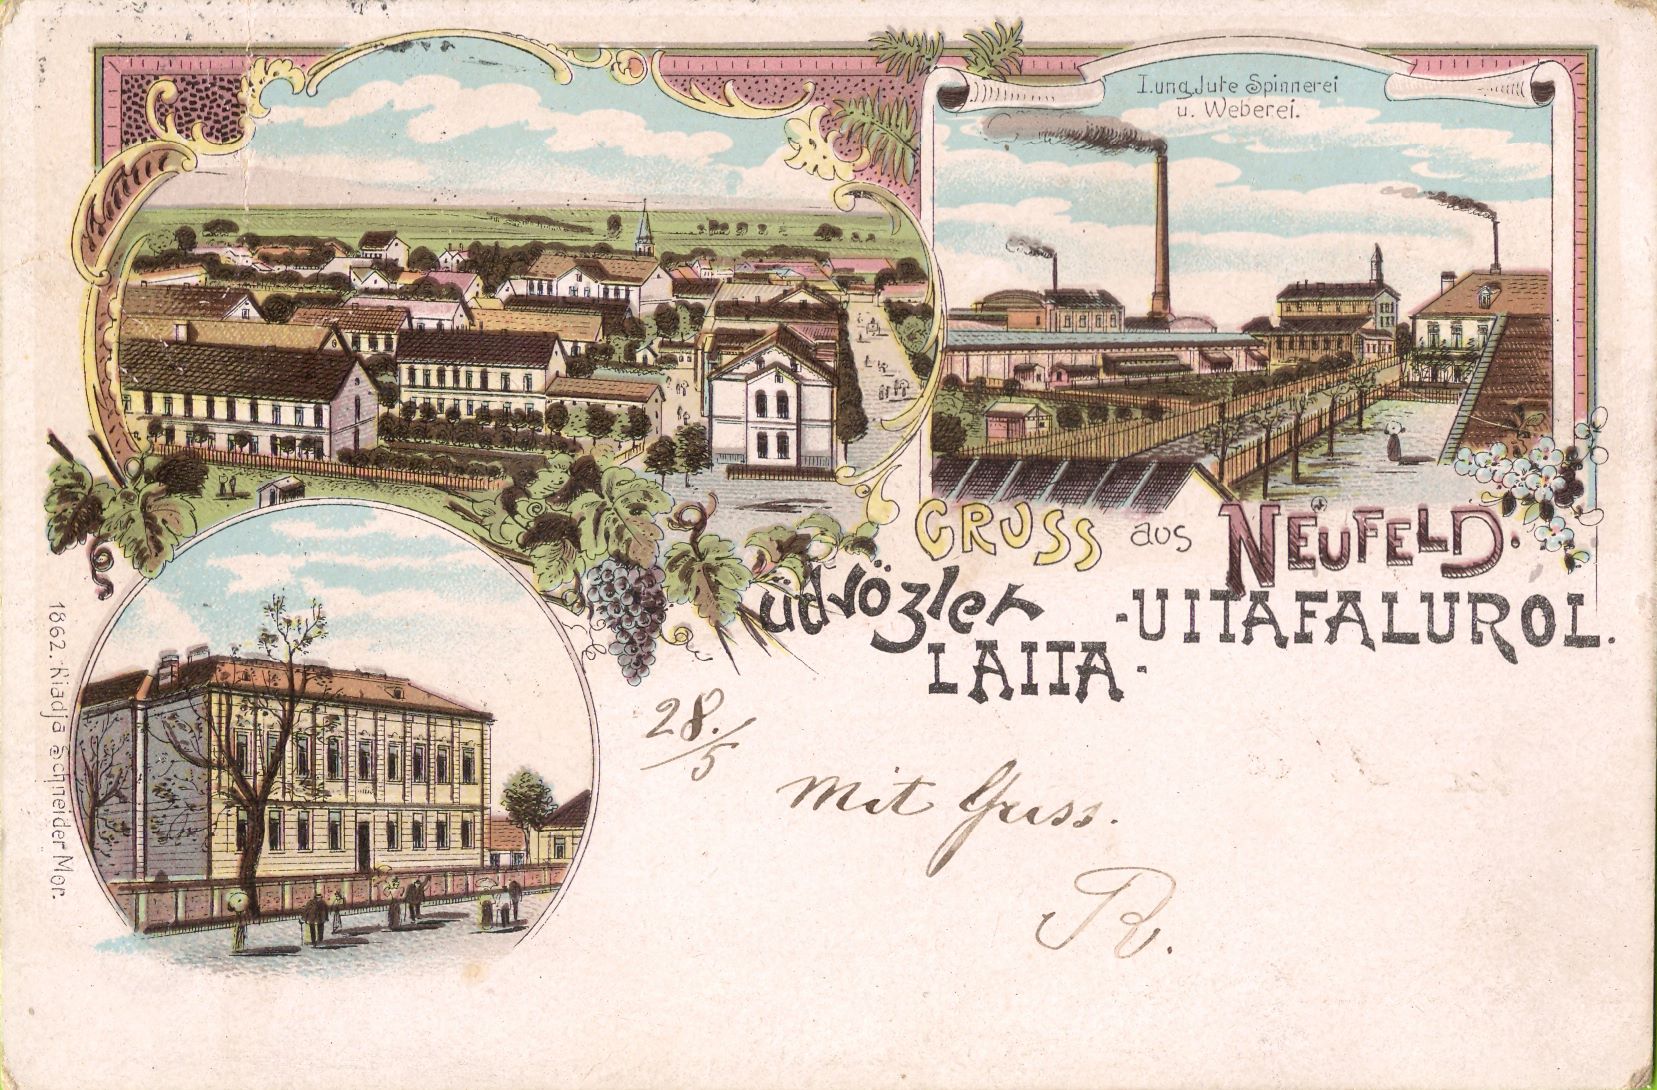 I. ung. Jute Spinnerei
u. Weberei.
GRUSS aus NEUFELD.
üdvözlet
LAITA-UITAFALUROL.
28./5
Mit Gruss.
R.
1862. Kiadja Schneider Mor.